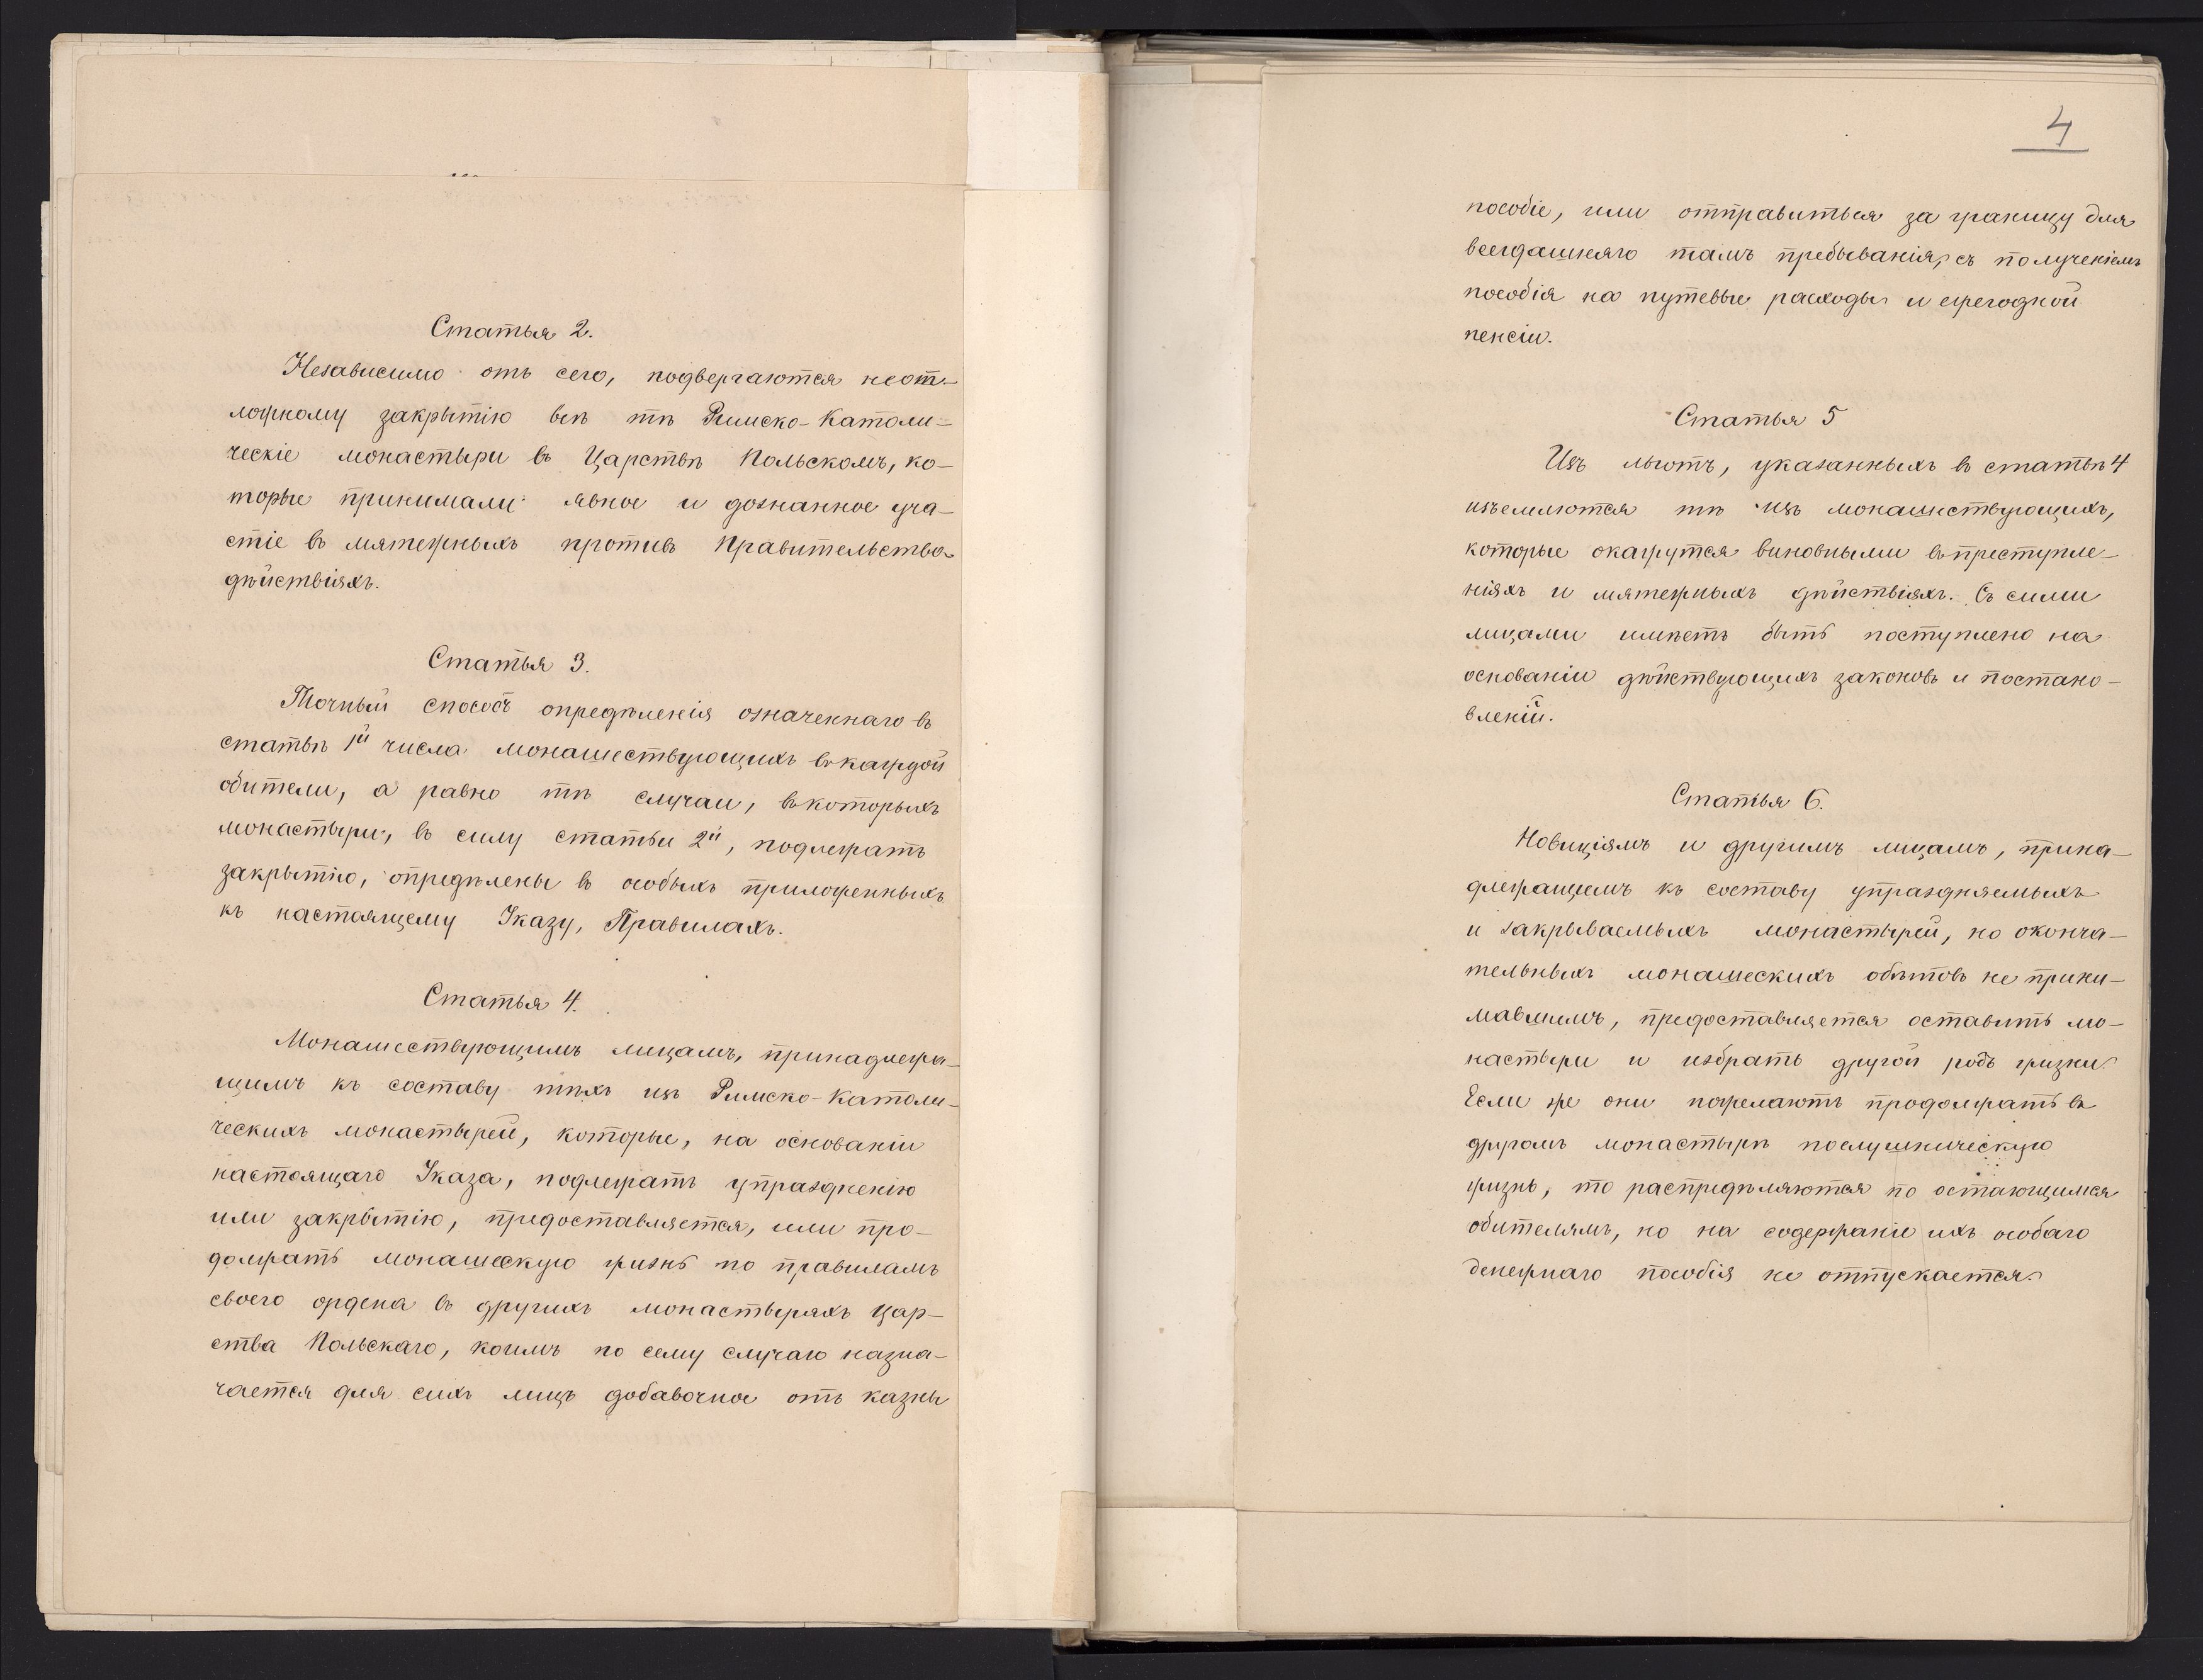 Статья 2.
Независимо отъ сего, подвергаются неот-
ложному закрытію всѣ тѣ Римско-Католи-
ческіе монастыри въ Царствѣ Польскомъ, ко-
торые принимали явное и дознанное уча-
стіе въ мятежныхъ противъ Правительства
дѣйствіяхъ.
Статья 3.
Точный способъ опредѣленія означеннаго въ
статьѣ 1й числа монашествующихъ въ каждой
обители, а равно тѣ случаи, въ которыхъ
монастыри, въ силу статьи 2й, подлежатъ
закрытію, опредѣлены въ особыхъ приложенныхъ
къ настоящему Указу, Правилахъ.
Статья 4.
Монашествующимъ лицамъ, принадлежа-
щимъ къ составу тѣхъ изъ Римско-Католи-
ческихъ монастырей, которые, на основаніи
настоящаго Указа, подлежатъ упраздненію
или закрытію, предоставляется, или про-
должать монашескую жизнь по правиламъ
своего ордена въ другихъ монастыряхъ Цар-
ства Польскаго, коимъ по сему случаю назна-
чается для сихъ лицъ добавочное отъ казны
4
пособіе, или отправиться за границу для
всегдашняго тамъ пребыванія, съ полученіемъ
пособія на путевые расходы и ежегодной
пенсіи.
Статья 5
Изъ льготъ, указанныхъ въ статьѣ 4
изъемлются тѣ изъ монашествующихъ,
которые окажутся виновными въ преступле-
ніяхъ и мятежныхъ дѣйствіяхъ. Съ сими
лицами имѣетъ быть поступлено на
основаніи дѣйствующихъ законовъ и постано-
вленій.
Статья 6.
Новиціямъ и другимъ лицамъ, прина-
длежащимъ къ составу упраздняемыхъ
и закрываемыхъ монастырей, но оконча-
тельныхъ монашескихъ обѣтовъ не прини-
мавшимъ, предоставляется оставить мо-
настыри и избрать другой родъ жизни.
Если же они пожелаютъ продолжать въ
другомъ монастырѣ послушническую
жизнь, то распредѣляются по остающимся
обителямъ, но на содержаніе ихъ особаго
денежнаго пособія не отпускается.